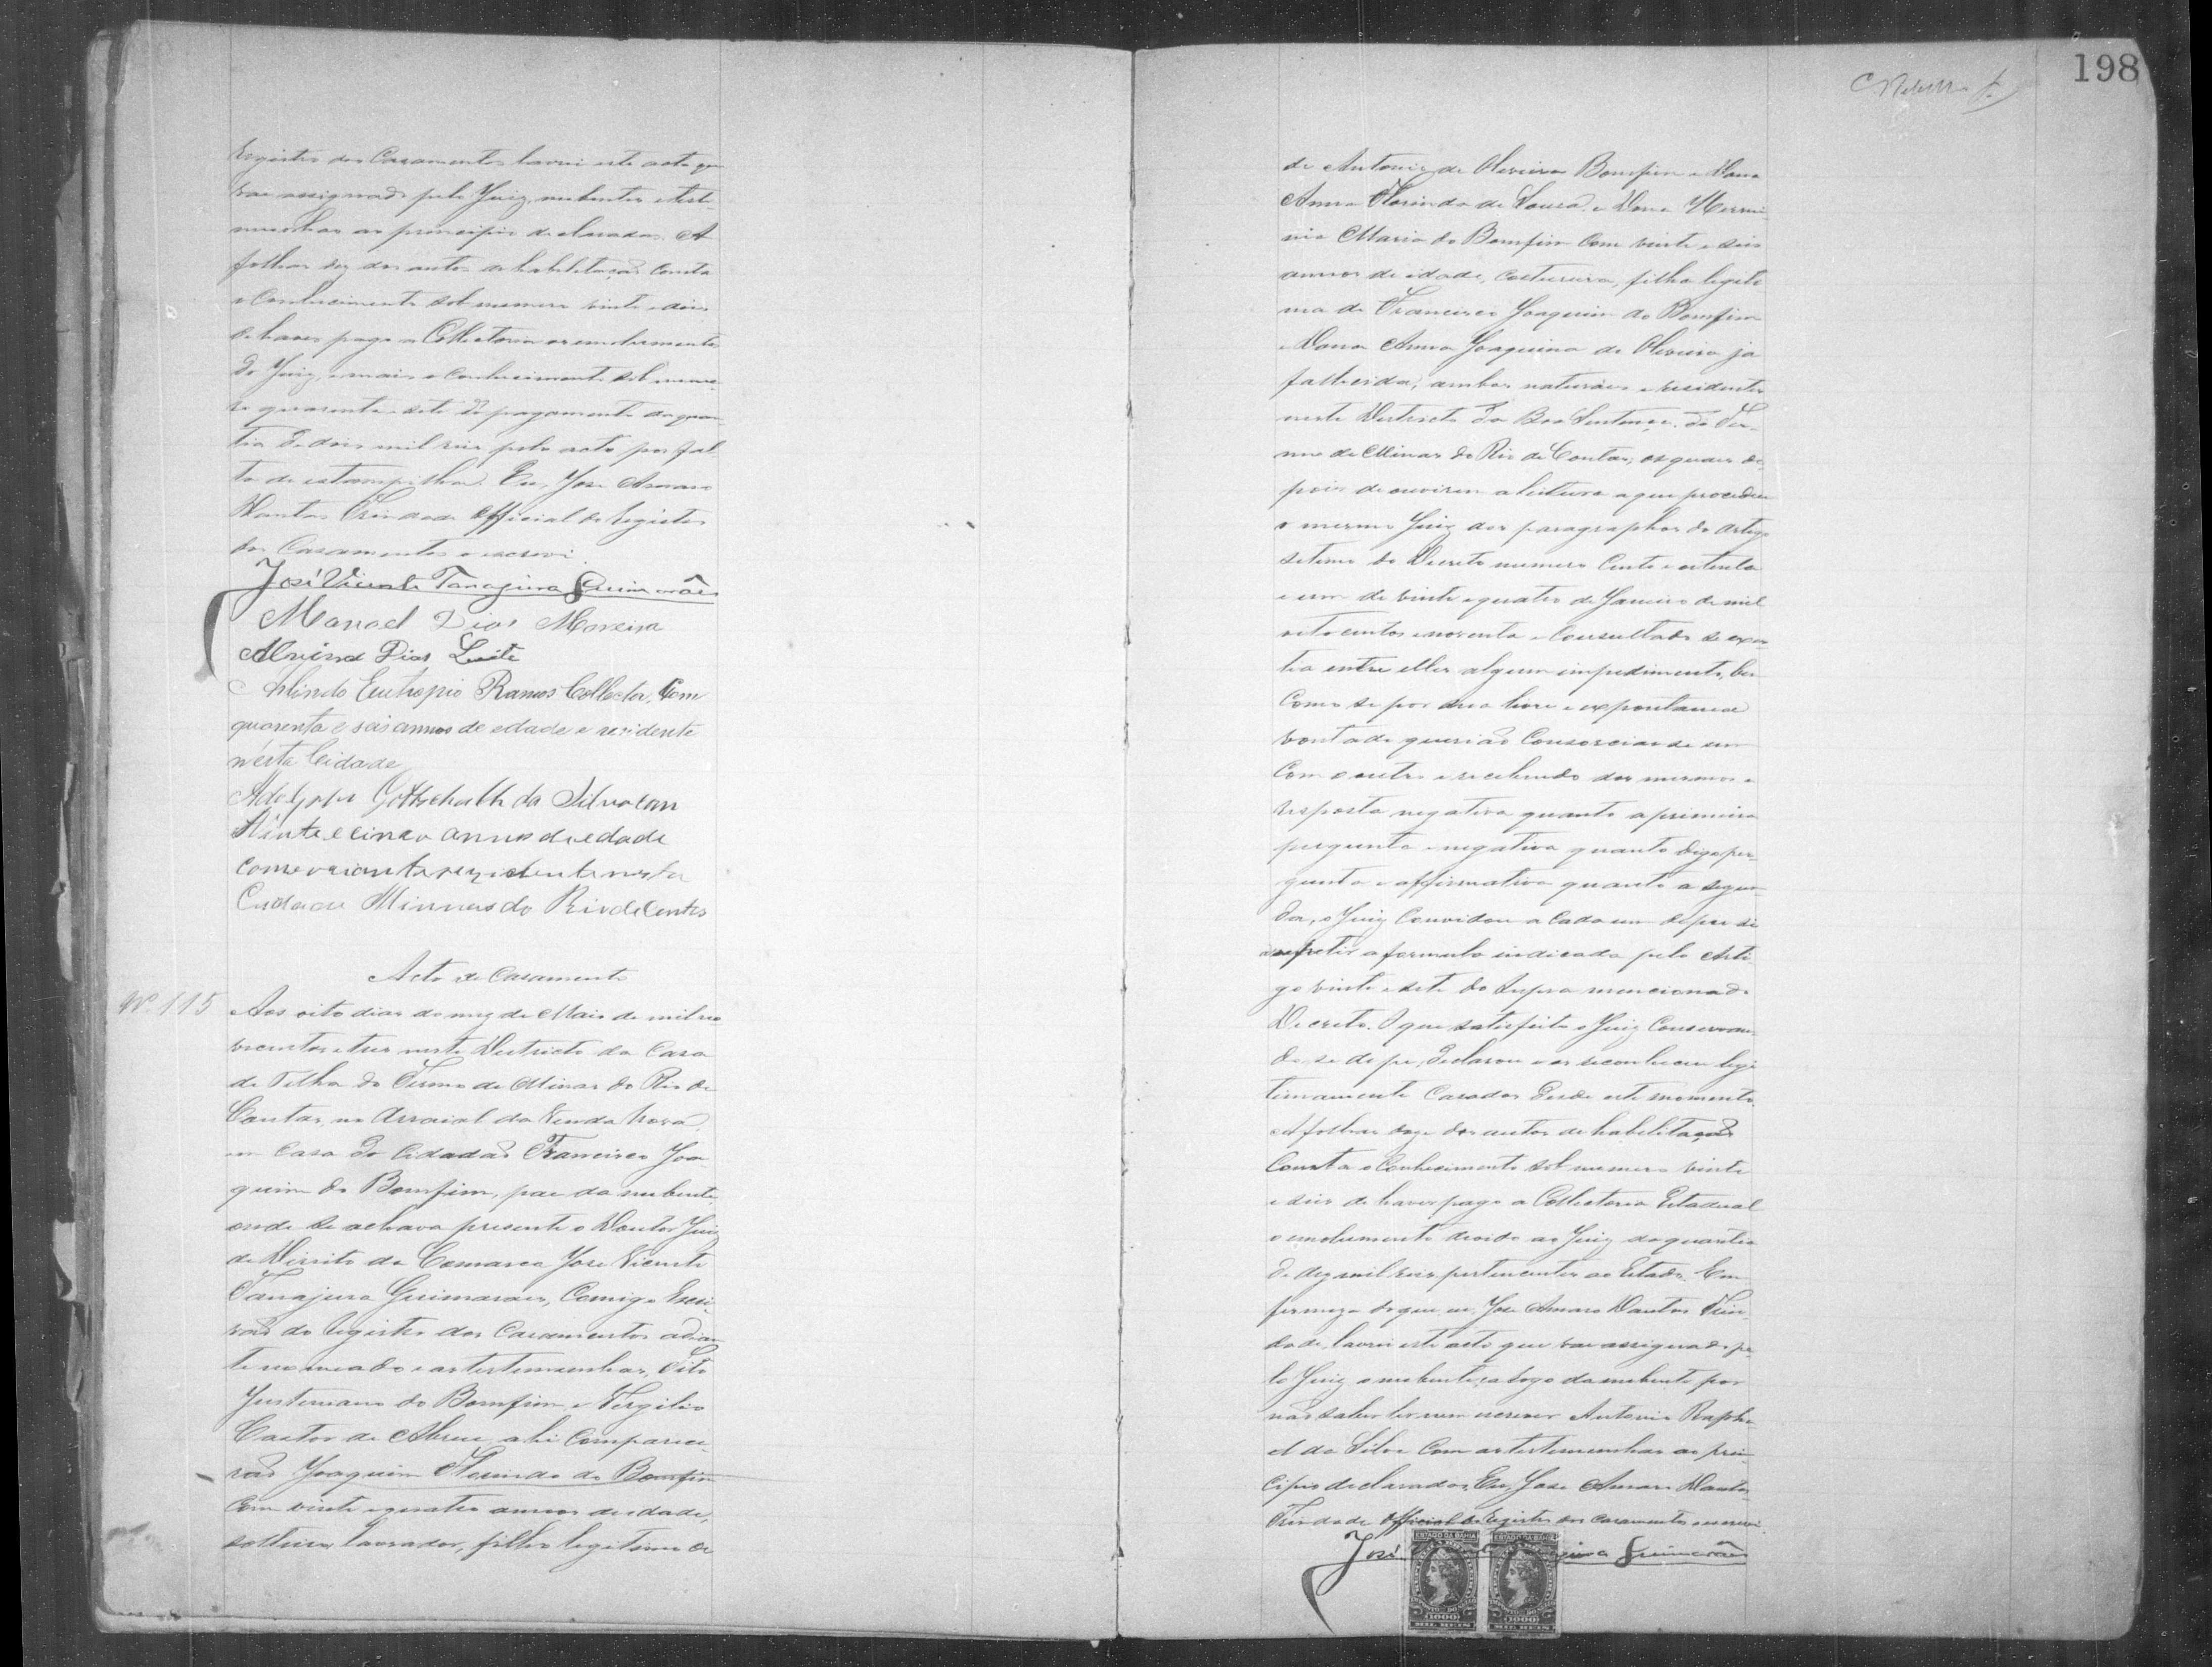 registro dos Casamentos lavrei este acto que
vae assignado pelo Juiz, nubentes e teste-
munhas ao principio declaradas. A
folhas dez dos autos de habilitação consta
o Conhecimento sob numero vinte e dois
de haver pago a Collectoria os emolumentos
do Juiz, e mais o conhecimento sob nume-
ro quarenta e sete do pagamento da quan-
tia de dois mil reis pelo acto por fal-
ta de estampilha. Eu, José Amaro
Dantas Trindade Official do registro
dos Casamentos o escrevi.
José Vicente Tanajura Guimarães
Manoel Dias Moreira
Dias Leite
Arlindo Eutropio Ramos Collector, Com
quarenta e seis annos de edade e residente
n'esta Cidade
Gottschalk da Silva com
Vinte e cinco annos de edade
comerciante rezidente nesta
Cidade Minnas do Rio de Contas
Acto de Casamento
Nº 115
Aos oito dias do mez de Maio de mil no
vecentos e tres neste Districto da Casa
de Telha do Termo de Minas do Rio de
Contas, no Arraial da Venda Nova,
em casa do Cidadão Francisco Joa
quim do Bomfim, pae da nubente,
onde se achava presente o Doutor Juiz
de Direito da Comarca José Vicente
Tanajura Guimarães, Comigo Escri-
vão do registro dos Casamentos adian
te nomeado e as testemunhas, Tito
Justiniano do Bomfim, e Virgilio
Castor de Abreu, ahi comparece-
rão Joaquim Florindo do Bomfim
com vinte e quatro annos de idade,
solteiro, lavrador, filho legitimo de
198
de Antonio de Oliveira Bomfim e Dona
Anna Florinda de Souza, e Dona Hermi-
nia Maria do Bomfim com vinte e seis
annos de idade, costureira, filha legiti
ma de Francisco Joaquim do Bomfim
e Dona Anna Joaquina de Oliveira já
fallecida, ambos naturaes e residentes
neste Districto da Boa Sentença, do Ter-
mo de Minas do Rio de Contas, os quaes de-
pois de ouvirem a leitura a que procedeu
o mesmo Juiz dos paragraphos do artigo
setimo do Decreto numero Cento e oitenta
e um de vinte e quatro de Janeiro de mil
oito centos e noventa e consultado se exis
tia entre elles algum impedimento, bem
como se por sua livre e expontanea
vontade querião consorciar-se um
com o outro e recebendo dos mesmos a
resposta negativa quanto a primeira
pergunta e negativa quanto digo per-
gunta e affirmativa quanto a segun-
da, o Juiz convidou a cada um de per si
a repetir a formula indicada pelo Arti-
go vinte e sete do supra mencionado
Decreto. O que satisfeito o Juiz conservan-
do-se de pé, declarou e os reconheceu legi-
timamente casados desde este momento.
A folhas doze dos autos de habilitação
consta o conhecimento sob numero vinte
e seis de haver pago a Collectoria Estadual
o emolumento devido ao Juiz da quantia
de dez mil reis pertencentes ao Estado. Em
firmeza do que eu, José Amaro Dantas Trin-
dade, lavrei este acto que vae assignado pe-
lo Juiz o nubente, a rogo da nubente por
não saber ler nem escrever Antonio Rapha-
el da Silva com as testemunhas ao prin-
cipio declaradas. Eu, José Amaro Dantas
Trindade Official do Registro dos Casamentos o escrevi.
José Guimarães
ESTADO DA BAHIA
1000
MIL REIS
ESTADO DA BAHIA
1000
MIL REIS